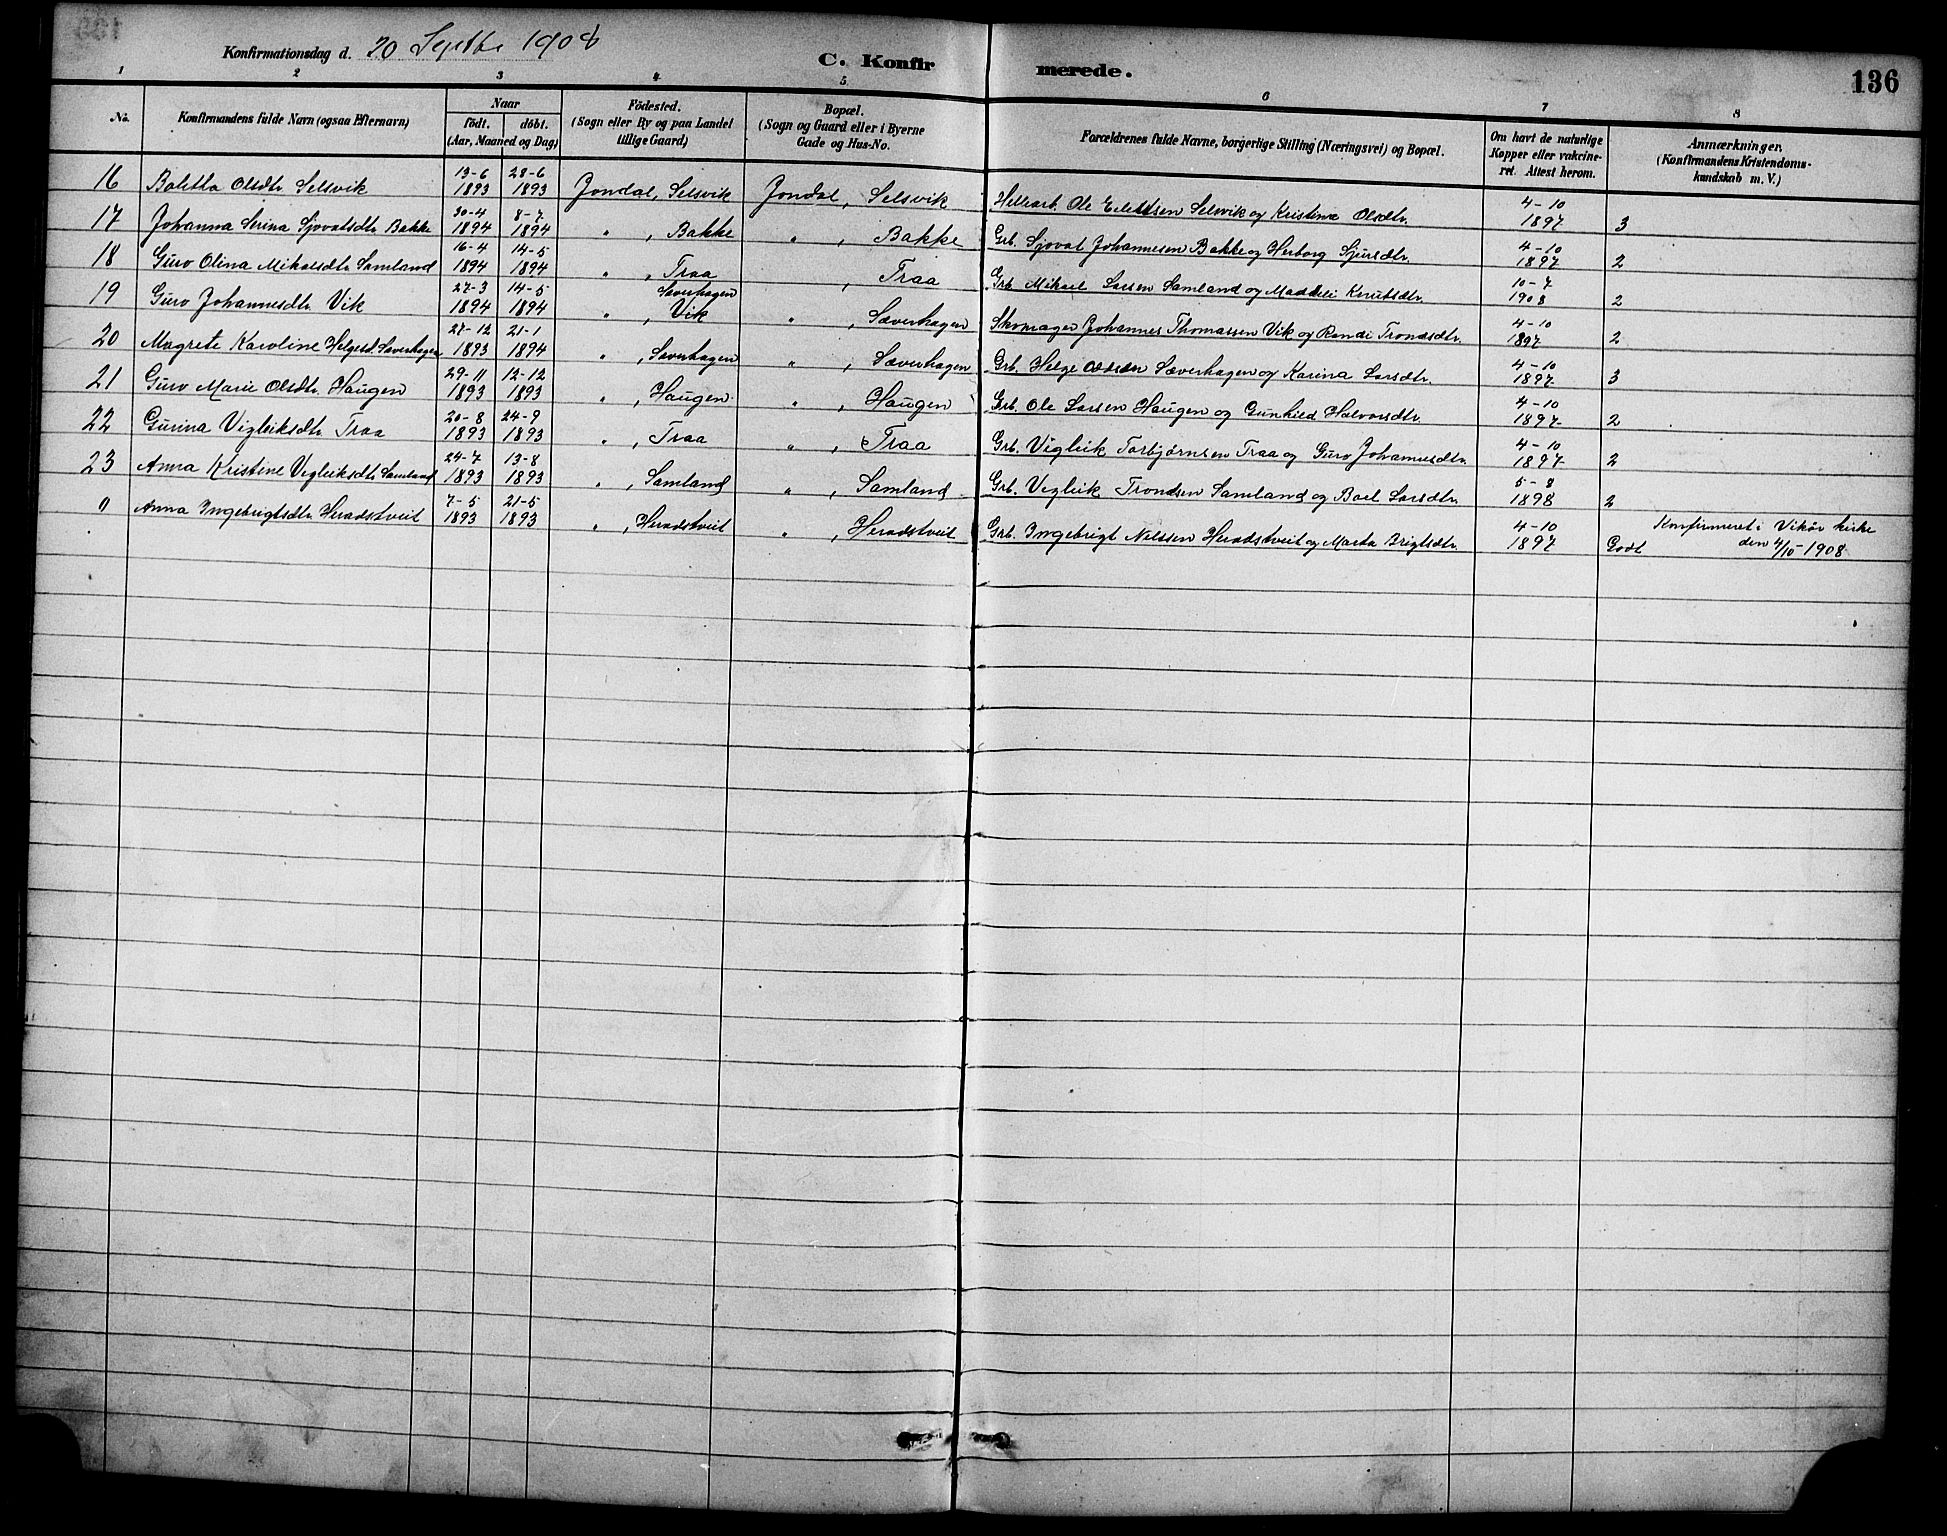 Konfirmationsdag d. 20 Septbr 1908
C. Konfirmerede.
136
1 2 3 4 5 6 7 8
No.
Konfirmandens fulde Navn (ogsaa Efternavn)
Naar
födt. döbt.
(Aar, Maaned og Dag)
Födested.
(Sogn eller By og paa Landet
tillige Gaard)
Bopæl.
(Sogn og Gaard eller i Byerne
Gade og Hus-No.
Forældrenes fulde Navne, borgerlige Stilling (Næringsvei) og Bopæl.
Om havt de naturlige
Kopper eller vakcine-
ret. Attest herom.
Anmærkninger.
(Konfirmandens Kristendoms-
kundskab m. V.)
16 Olsdtr. Selsvik 13-6 1893 28-6 1893 Jondal, Selsvik Jondal, Selsvik Ole Selsvik og Kristina Olsdtr. 4-10 1897 3
17 Johanna Serina Sjovatsdtr. Bakke 30-4 1894 8-7 1894 " , Bakke " , Bakke Grb. Sjovat Johannesen Bakke og Herborg Sjursdtr. 4-10 1897 2
18 Guro Olina Mikalsdtr. Samland 16-4 1894 14-5 1894 " , Traa , Traa Grb. Mikael Larsen Samland og Knutsdtr. 10-7 1908 2
19 Guro Johannesdtr. Vik 27-3 1894 14-5 1894 " , Sæverhagen Vik " , Sæverhagen Skomager Johannes Thomassen Vik og Randi Trondsdtr. 4-10 1897 2
20 Magrete Karoline Helgesd. Sæverhagen 27-12 1893 21-1 1894 " , Sæverhagen " , Sæverhagen Grb. Helge Oddsen Sæverhagen og Karina Larsdtr. 4-10 1897 3
21 Guro Marie Olsdtr. Haugen 29-11 1893 12-12 1893 " , Haugen " , Haugen Grb. Ole Larsen Haugen og Gunhild Halvorsdtr. 4-10 1897 2
22 Gurina Vigleiksdtr. Traa 20-8 1893 24-9 1893 " , Traa " , Traa Grb. Vigleik Torbjørnsen Traa og Guro Johannesdtr. 4-10 1897 2
23 Anna Kristine Vigleiksdtr. Samland 24-7 1893 13-8 1893 " , Samland " , Samland Grb. Vigleik Trondsen Samland og Larsdtr. 5-8 1898 2
Anna Ingebrigtsdtr. Heradstveit 7-5 1893 21-5 1893 " , Heradstveit " , Heradstveit Grb. Ingebrigt Nilssen Heradstveit og Marta Brigtsdtr. 4-10 1897 Godt Konfirmeret i Vikör kirke
den 4/10 1908